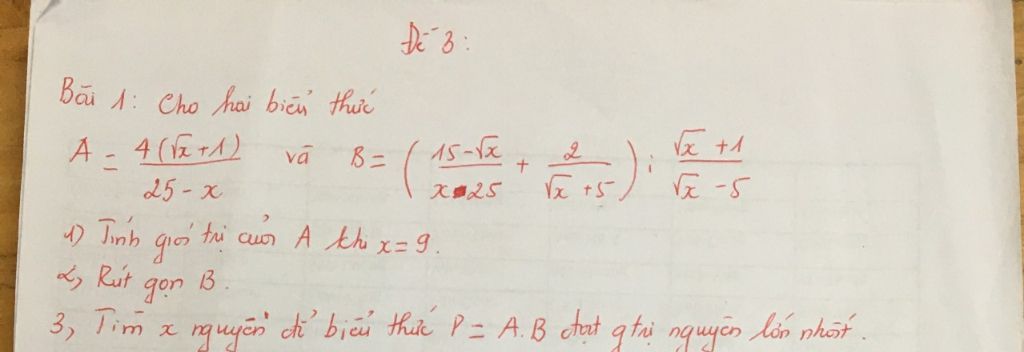 Đề 3:
Bài 1: Cho hai biểu thức
A = 4(√x + 1) / (25 - x) và B = ( (15 - √x) / (x - 25) + 2 / (√x + 5) ) : (√x + 1) / (√x - 5)
1) Tính giá trị của A khi x = 9.
2, Rút gọn B.
3, Tìm x nguyên để biểu thức P = A.B đạt gtrị nguyên lớn nhất.